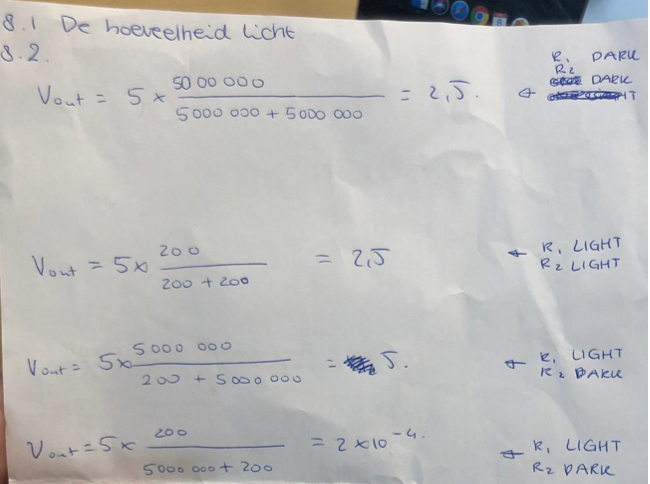 8.1 De hoeveelheid licht
8.2.
Vout = 5 × 5000 000 / 5000 000 + 5000 000 = 2,5. ← R1 DARK
R2 DARK
Vout = 5× 200 / 200 + 200 = 2,5 ← R1 LIGHT
R2 LIGHT
Vout = 5× 5000 000 / 200 + 5000 000 = 5. ← R1 LIGHT
R2 DARK
Vout = 5× 200 / 5000 000 + 200 = 2 ×10⁻⁴. ← R1 LIGHT
R2 DARK